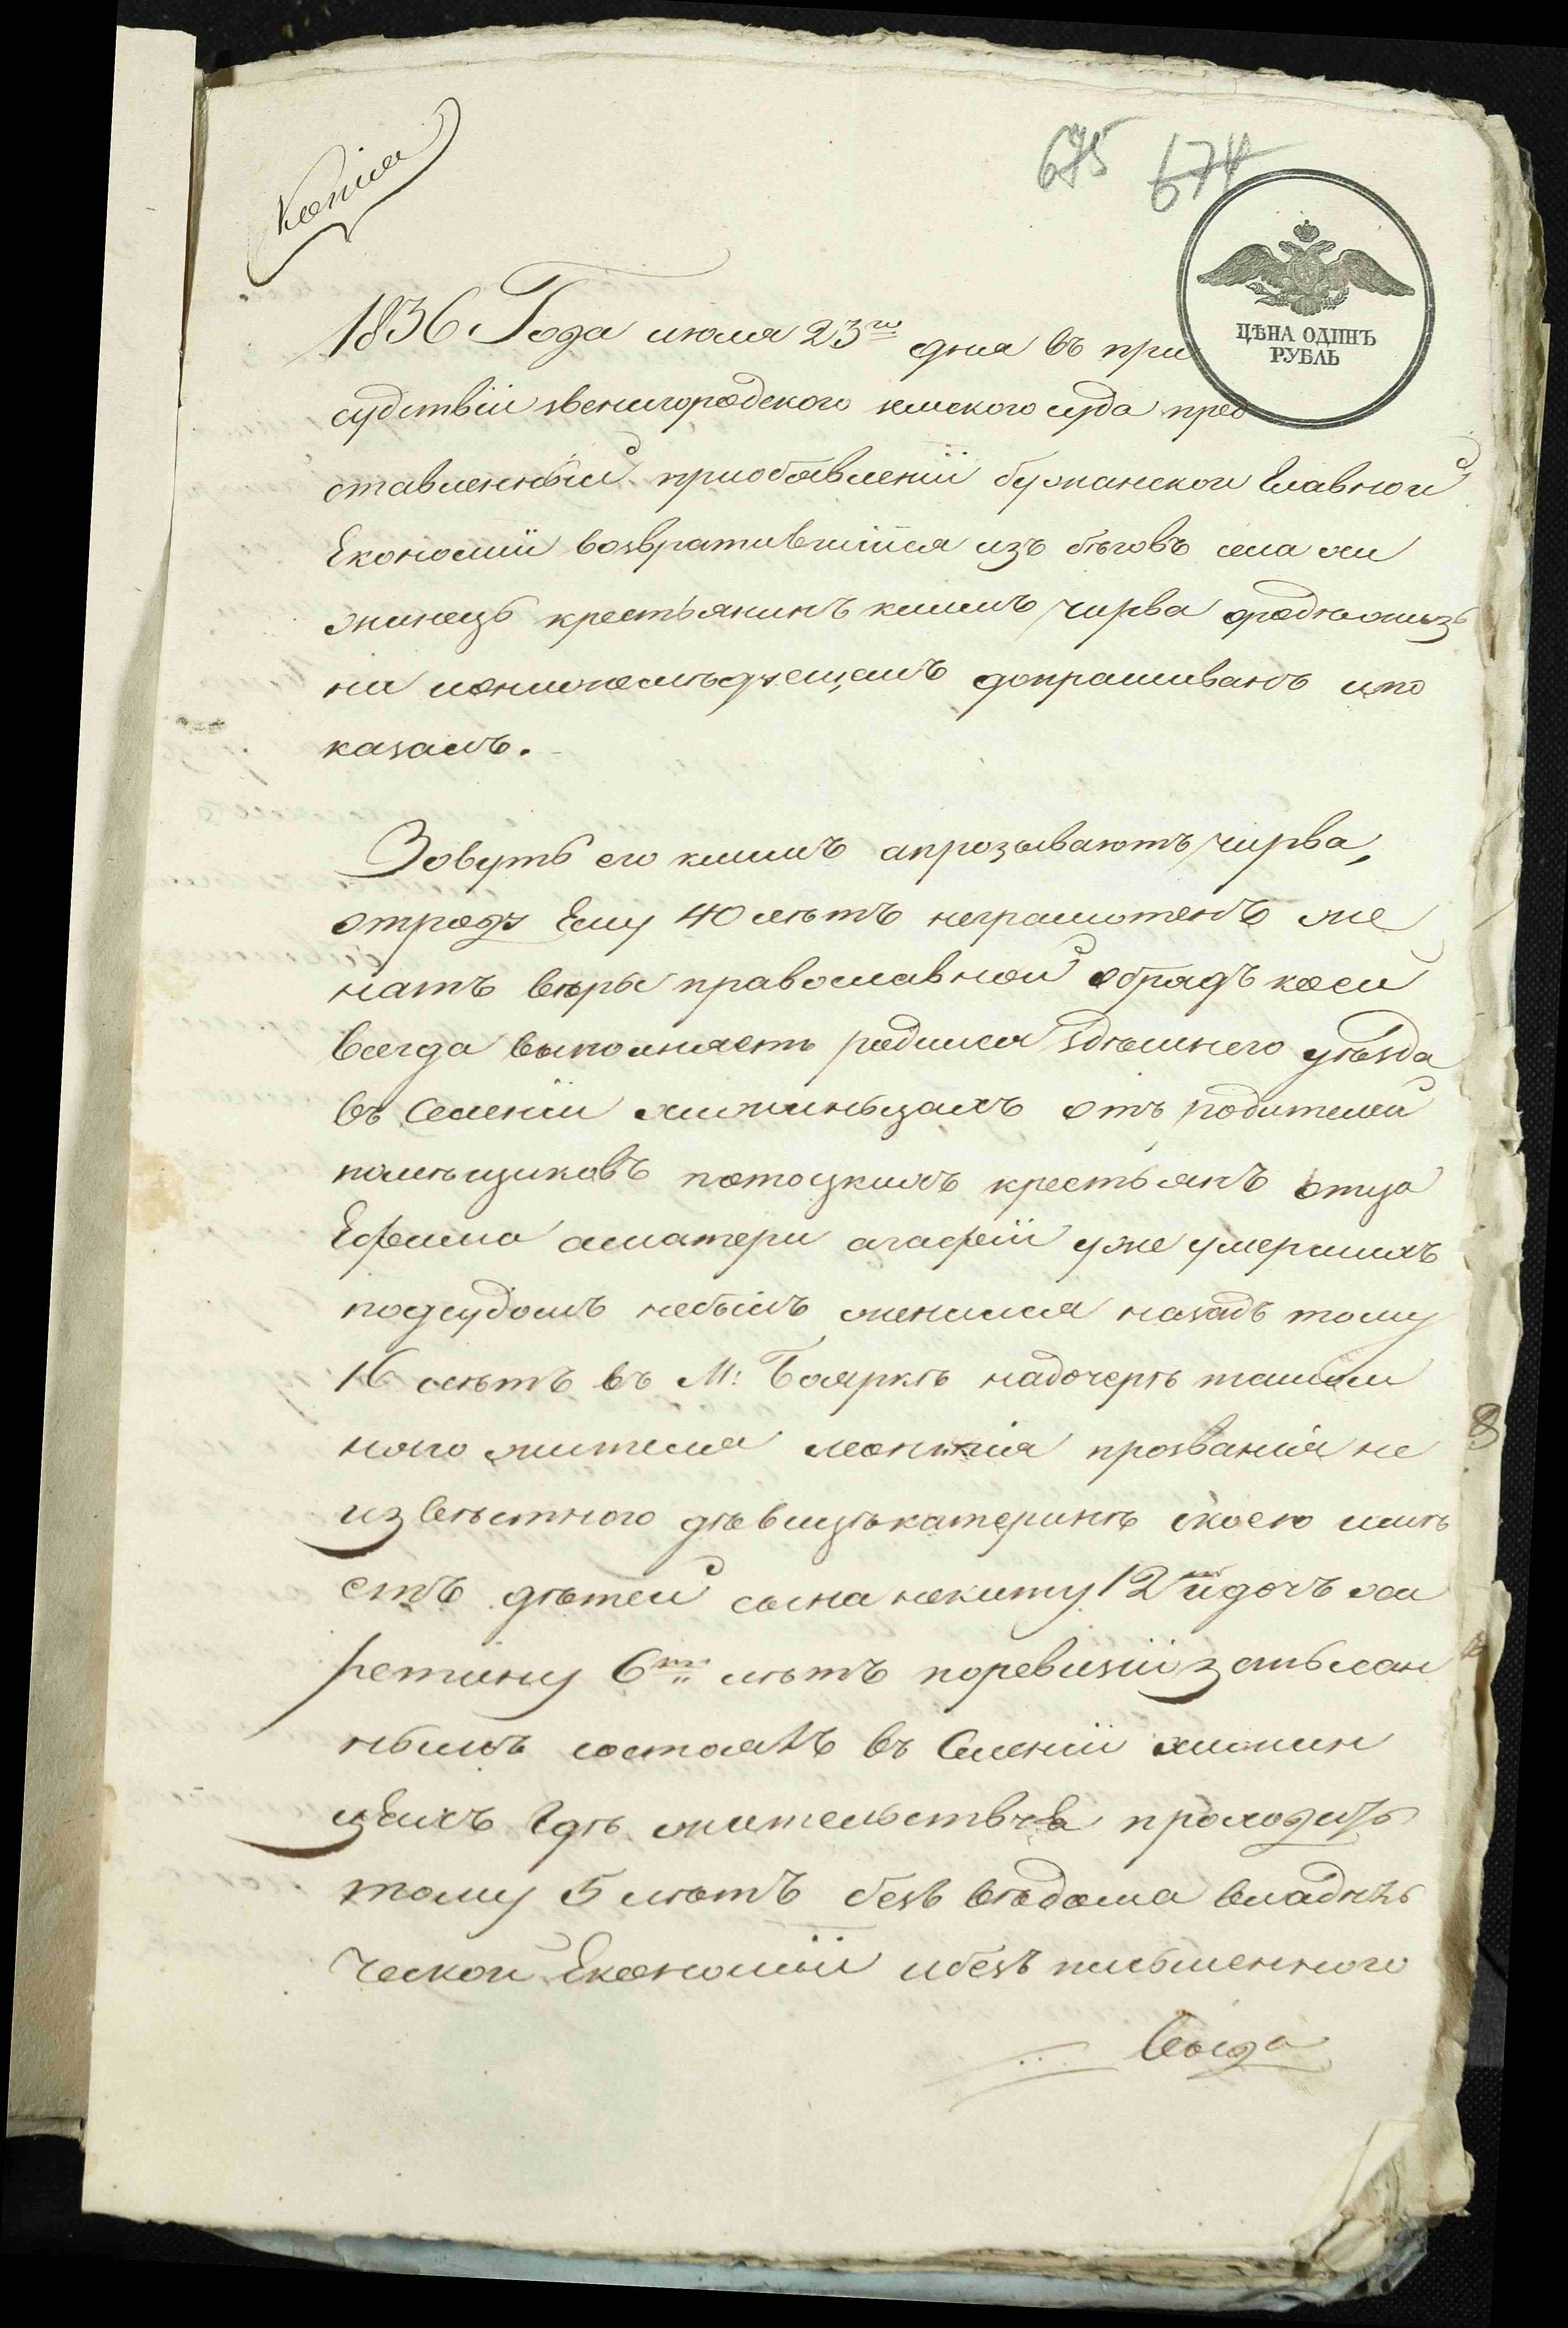 Копия
675 674
ЦѢНА ОДИНЪ
РУБЛЬ
1836 Года июля 23го дня въ при
судствіи звенигородского земского суда пред
ставленный приобъявленіи бужанской Главной
Економіи возвратившійся изъ бѣговъ села хи
жинецъ крестьянинъ климъ чирва
допрашиванъ ипо
казалъ.
Зовутъ его климъ апрозываютъ чирва,
отроду Ему 40 лѣтъ неграмотенъ же
натъ вѣры православной обрядъ коей
всегда выполняетъ родился здѣшнего уѣзда
въ Селеніи хижинцахъ отъ родителей
помѣщиковъ потоцкихъ крестьянъ отца
Ефима аматери агафіи уже умершихъ
подсудомъ небылъ женился назадъ тому
16 лѣтъ въ М: Бояркѣ надочерѣ тамош
няго жителя леонтія прозванія не
извѣстного дѣвицѣкатеринѣ скоею имѣ
етъ дѣтей сына никиту 12 идочъ ха
ретину 6ти лѣтъ поревизіи записан
нымъ состоялъ въ Селеніи хижин
цахъ Гдѣ жительствуя проходитъ
тому 5 лѣтъ безъ вѣдома владѣль
ческой Економіи ибезъ писменного
вида
8